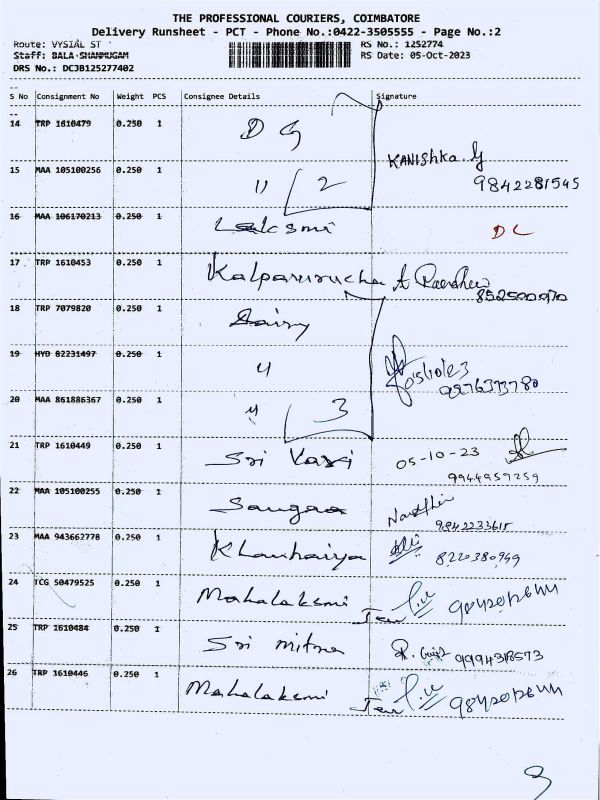 THE PROFESSIONAL COURIERS, COIMBATORE
Delivery Runsheet - PCT - Phone No.:0422-3505555 - Page No.:2
Route: VYSIAL ST RS No.: 1252774
Staff: BALA-SHANMUGAM RS Date: 05-Oct-2023
DRS No.: DCJB125277402
S No Consignment No Weight PCS Consignee Details Signature
14 TRP 1610479 0.250 1 D G
KANIShka. G
15 MAA 105100256 0.250 1 " 2 9842281545
16 MAA 106170213 0.250 1 Laksmi DL
17 TRP 1610453 0.250 1 8525000970
18 TRP 7079820 0.250 1
19 HYD 82231497 0.250 1 "
20 MAA 861886367 0.250 1 " 3
21 TRP 1610449 0.250 1 Sri 05-10-23
9944959259
22 MAA 105100255 0.250 1
9842233615
23 MAA 943662778 0.250 1 Khanhaiya 8220380949
24 TCG 50479525 0.250 1 Mahalaksmi
25 TRP 1610484 0.250 1 Sri mitra 9994318573
26 TRP 1610446 0.250 1 Mahalaksmi